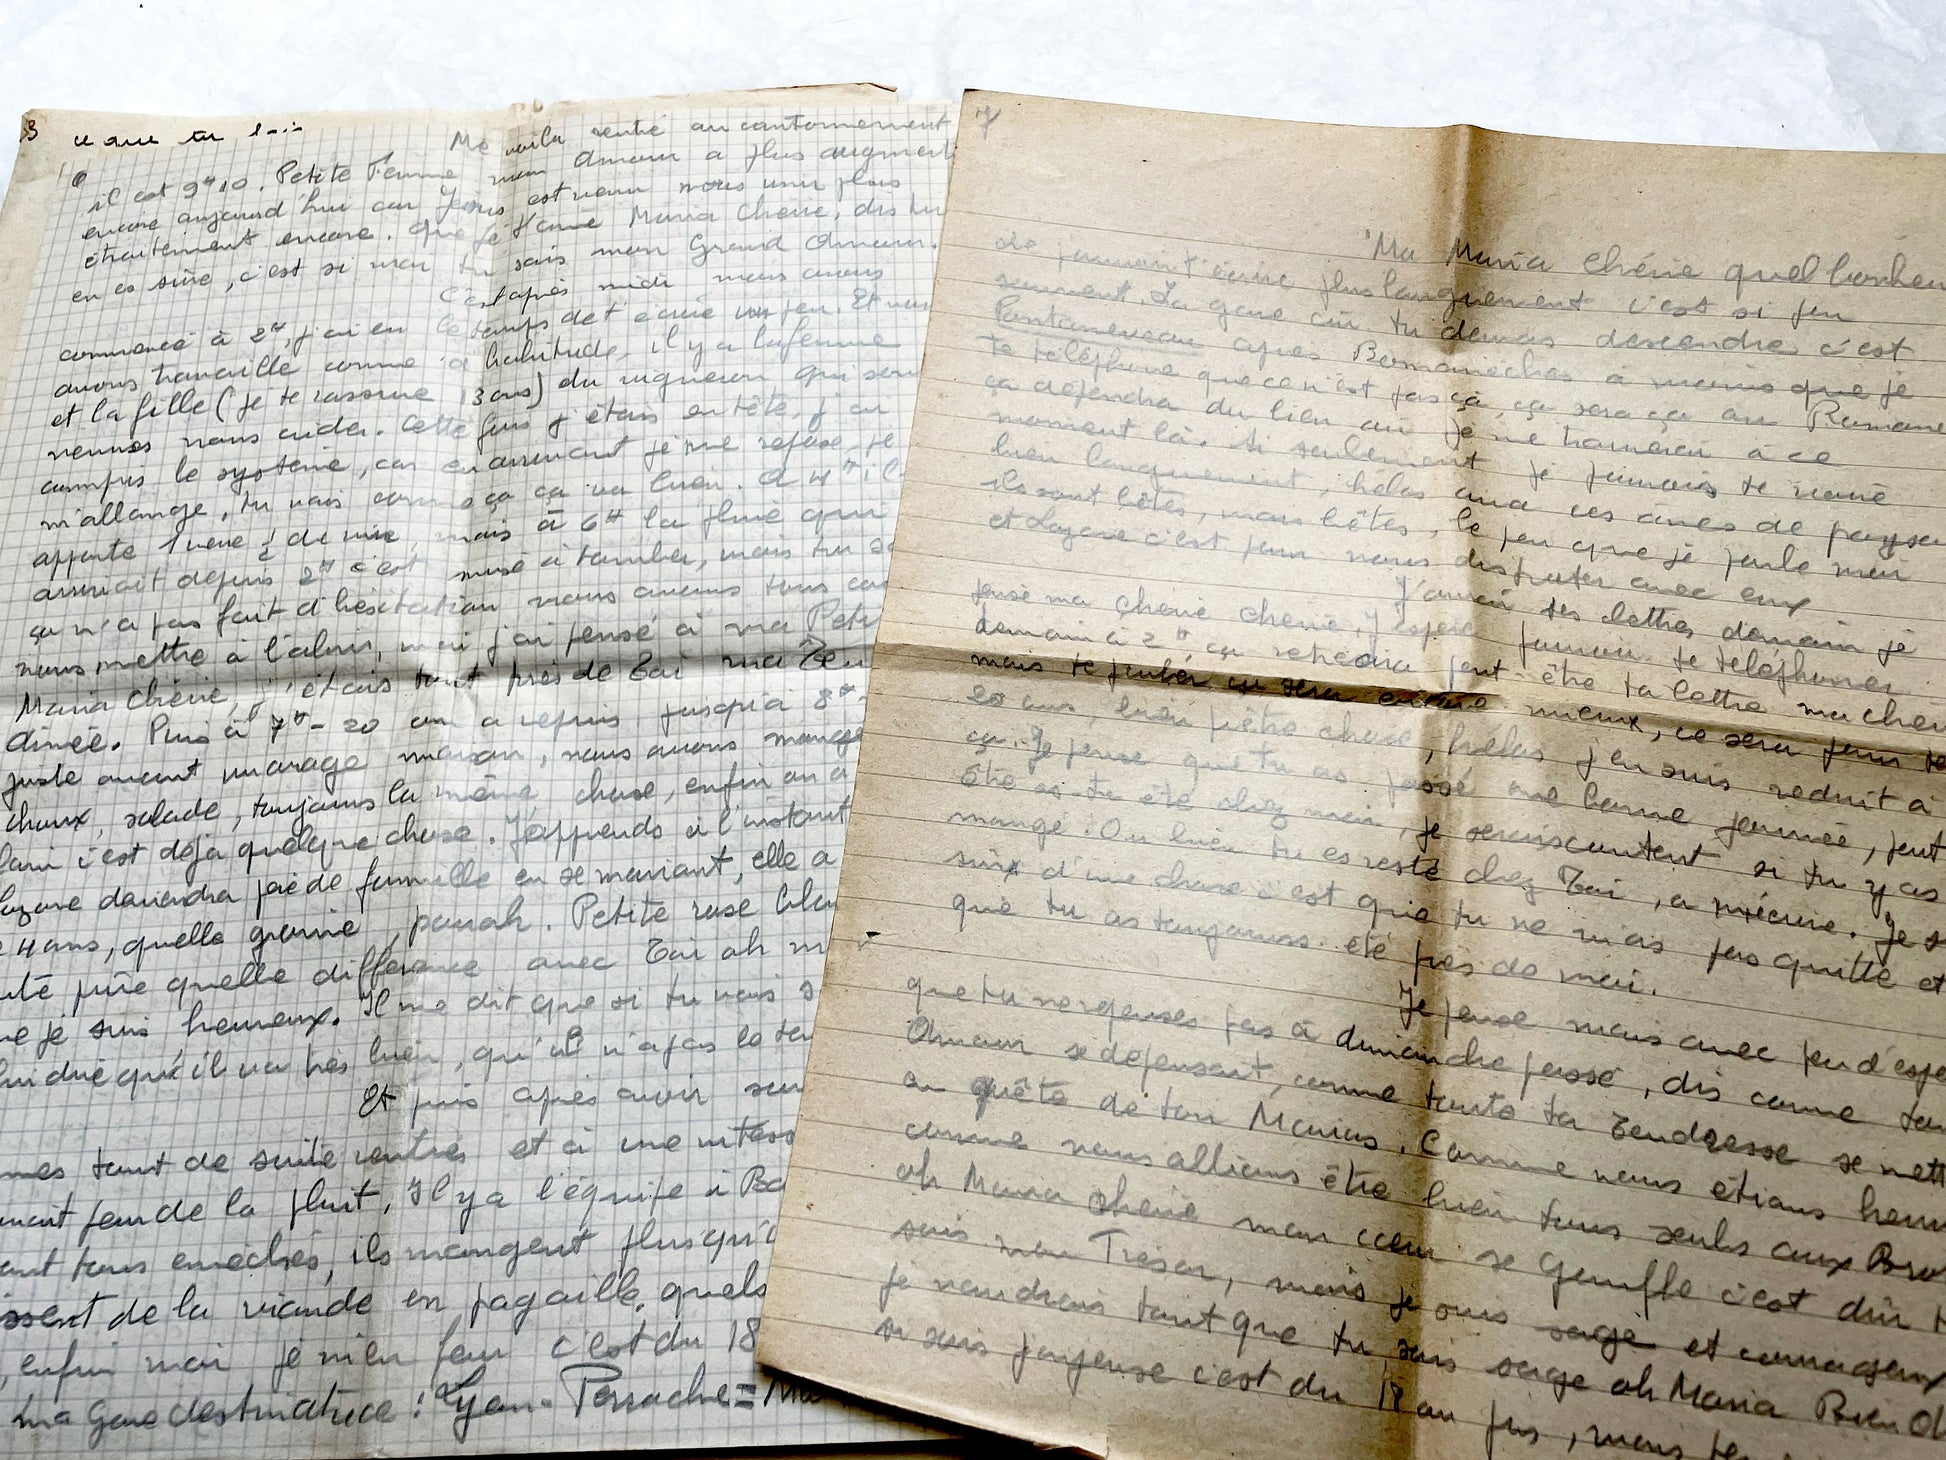 3 ce que tu
Me voilà rentré au cantonnement
il est 9H10. Petite Femme mon Amour a plus augmenté
encore aujourd'hui car Jésus est venu nous unir plus
étroitement encore. Que je t'aime Maria Chérie, dis tu
en es sûre, c'est si vrai tu sais mon Grand Amour.
C'est après midi nous avons
commencé à 2H, j'ai eu le temps de t'écrire un peu. Et nous
avons travaillé comme d'habitude, il y a la femme
et la fille (je te rassure 13 ans) du vigneron qui sont
venues nous aider. Cette fois j'étais en tête, j'ai
compris le système, car en arrivant je me repose je
m'allonge, tu vois comme ça ça va bien. A 4H il
apporte 1 verre ½ de vin, mais à 6H la pluie qui
arrivait depuis 2H c'est mise à tomber, mais tu sais
ça n'a pas fait d'hésitation nous avons tous
nous mettre à l'abri, moi j'ai pensé à ma Petite
Maria Chérie, j'étais tout près de Toi ma
aimée. Puis à 7H-20 on a repris jusqu'à 8H
juste avant maison, nous avons mangé
choux, salade, toujours la même chose, enfin on a
faim c'est déjà quelque chose. J'apprends à l'instant
Lazare deviendra père de famille en se mariant, elle a
4 ans, quelle pouah. Petite rose blan
uté pure quelle différence avec Toi ah m
ue je suis heureux. Il me dit que si tu vois s
lui dire qu'il va très bien, qu'il n'a pas le te
Et puis après avoir
mes tout de suite rentrés et à une vitesse
peur de la pluie, Il y a l'équipe à Ba
ont tous éméchés, ils mangent plus qu'
issent de la viande en pagaille, quels
, enfin moi je m'en fou c'est du 18
Ma Gare destinatrice : Lyon-Perrache =
7
Ma Maria Chérie quel bonheur
de pouvoir t'écrire plus longuement c'est si peu
souvent. La gare où tu devras descendre c'est
Pontanevaux après Romanèches à moins que je
te téléphone que ce n'est pas ça, ça sera ça ou Romane
ça dépendra du lieu où je me trouverai à ce
moment là. Si seulement je pouvais te
bien longuement, hélas avec ces ânes de paysa
ils sont bêtes, mais bêtes, le peu que je parle moi
et Lazare c'est pour nous disputer avec eux
J'aurai tes lettres demain je
pense ma Chérie Chérie. J'espère pouvoir te téléphoner
demain à 2H, ça retardera peut-être ta lettre ma chérie
mais te parler ça sera encore mieux, ce sera pour te
20 ans, bien piètre chose, hélas j'en suis réduit à
ça. Je pense que tu as passé une bonne journée, peut
être as-tu été chez moi, je serais content si tu y as
mangé. Ou bien tu es resté chez Toi, a m'écrire. Je s
suis d'une chose c'est que tu ne m'as pas quitté et
que tu as toujours été près de moi.
Je pense mais avec peu d'espo
que tu ne penses pas à dimanche passé, dis comme ton
Amour se dépensait, comme toute ta Tendresse se mett
en quête de ton Marius. Comme nous étions heur
comme nous allions être bien tous seuls aux Bro
ah Maria Chérie mon cœur se gonfle c'est dûr
sais mon Trésor, mais je suis sage et courageux
je voudrais tant que tu sois sage ah Maria Bien
si sois joyeuse c'est du 18 au jus, mais